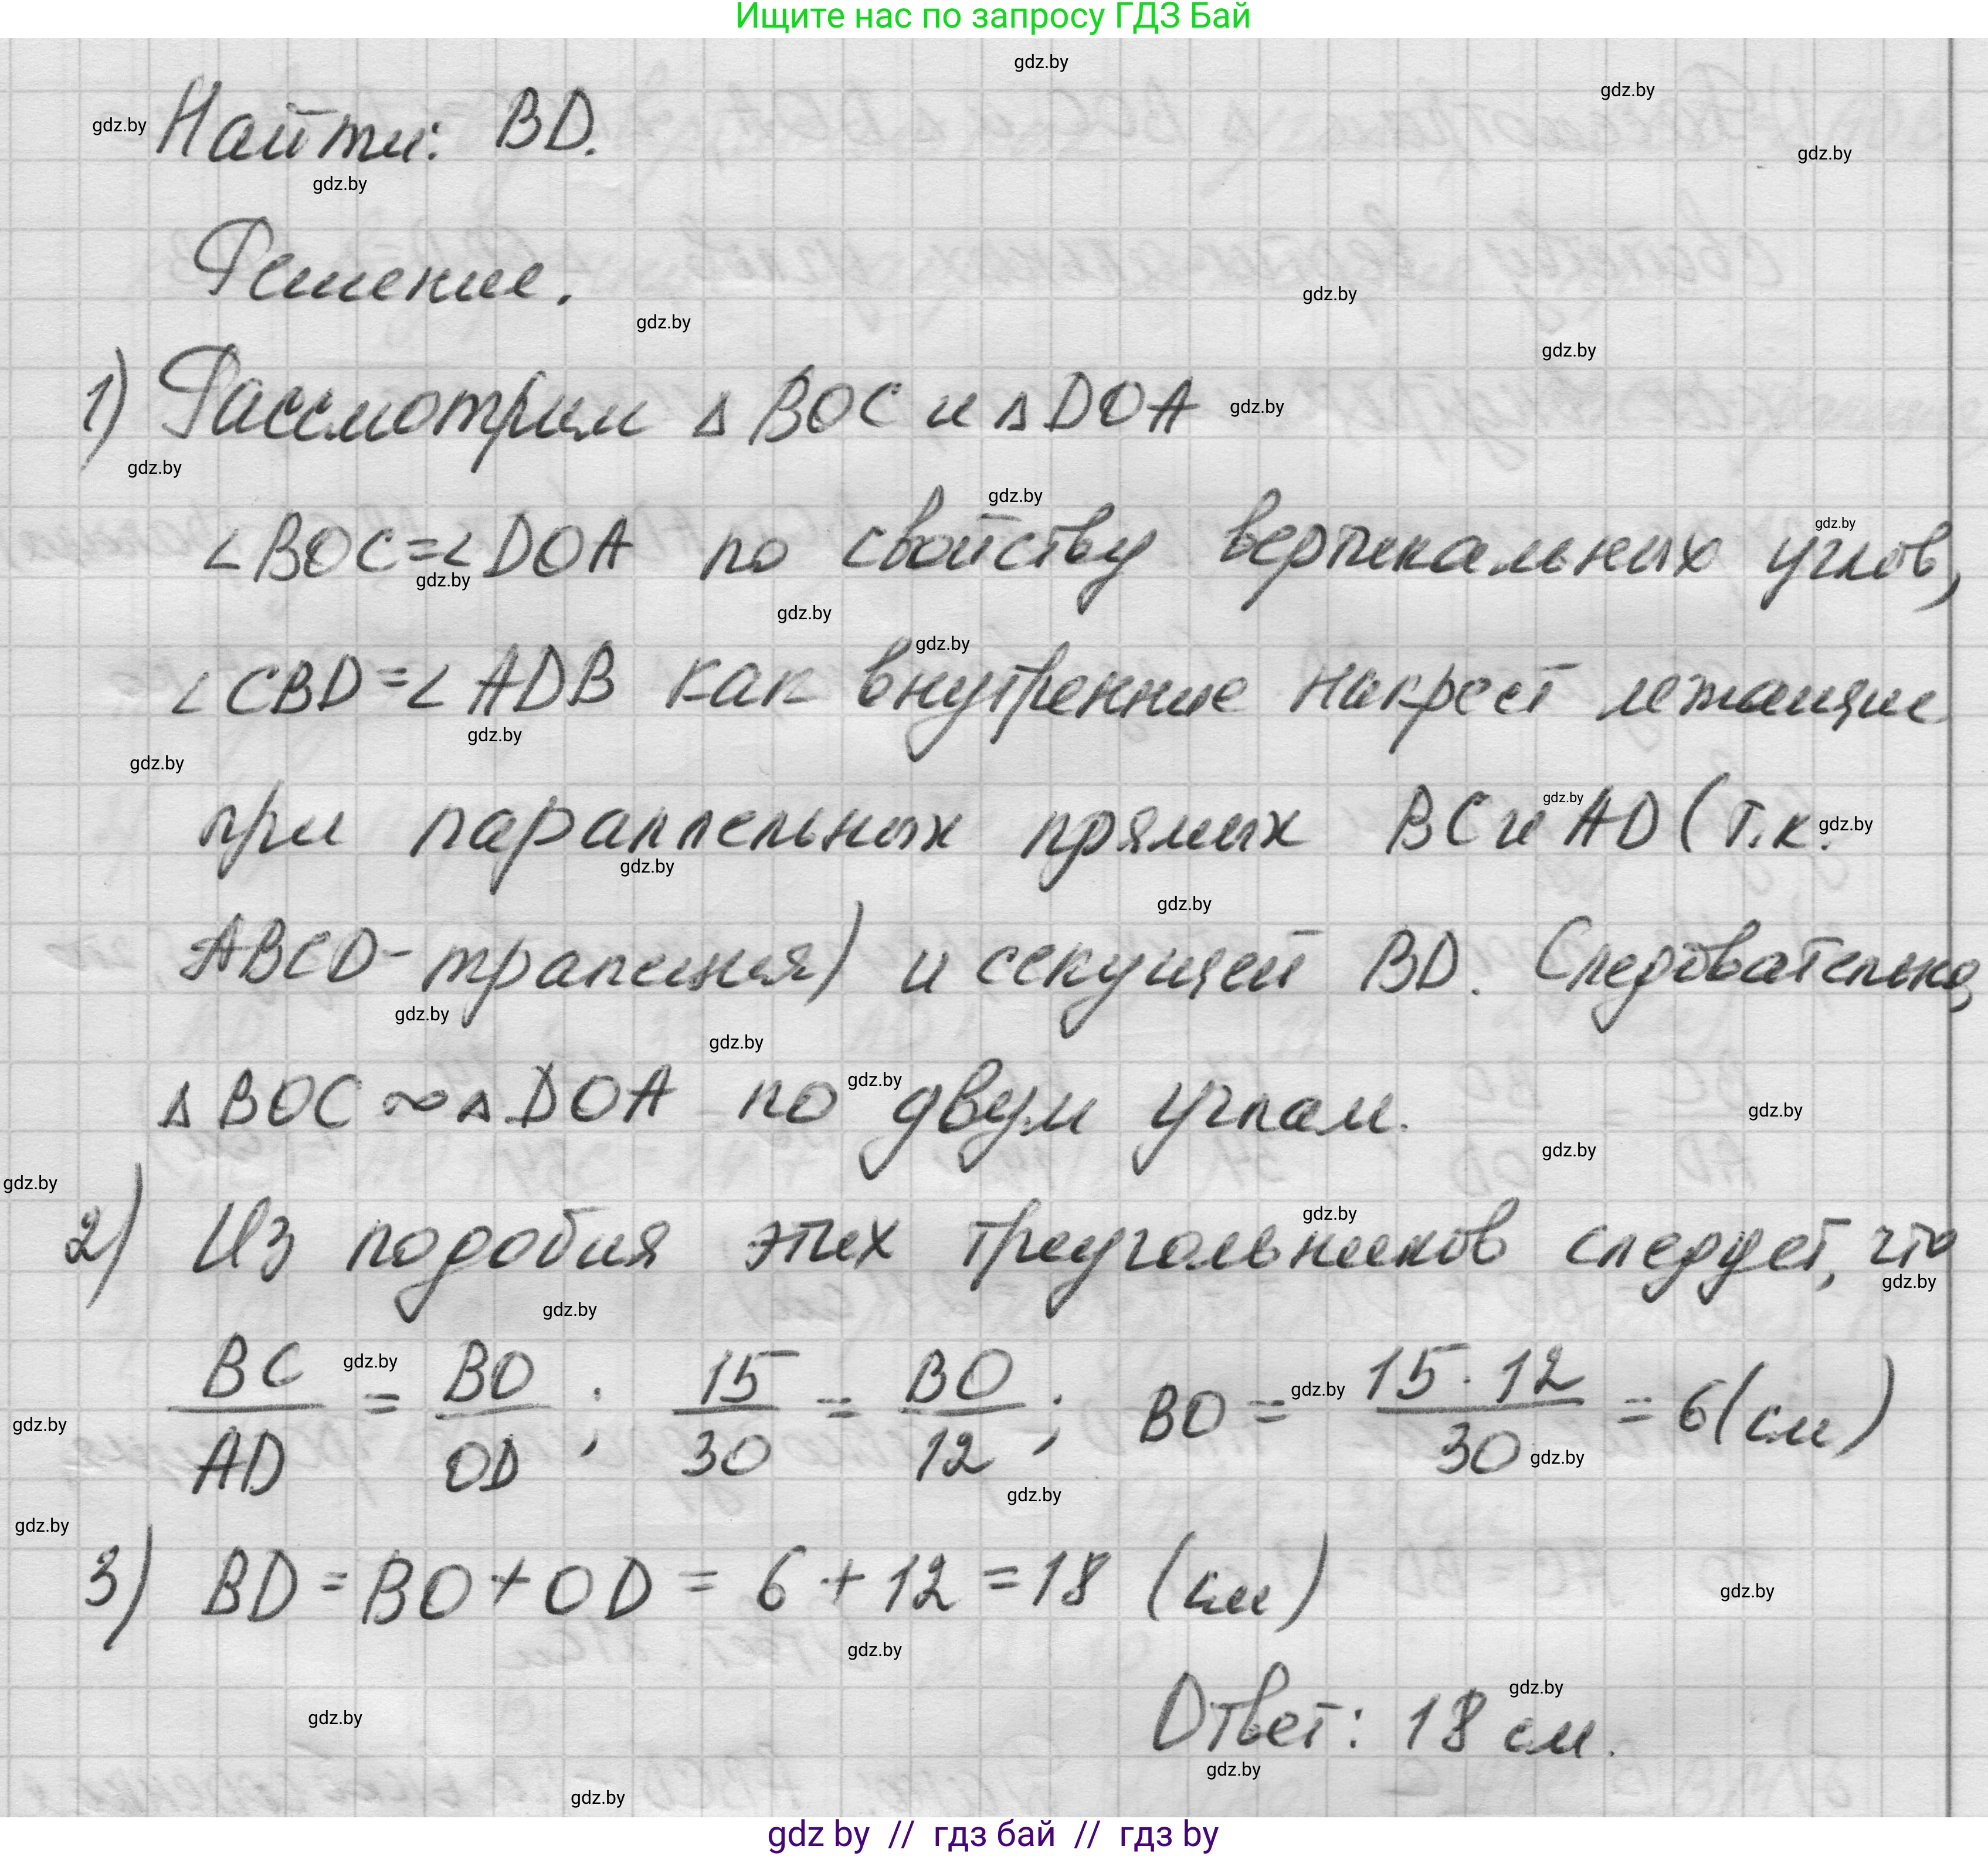 Ищите нас по запросу ГДЗ Бай
gdz.by
gdz.by
gdz.by
Найти: BD.
gdz.by
gdz.by
Решение.
gdz.by
gdz.by
gdz.by
1) Рассмотрим △BOC и △DOA
gdz.by
gdz.by
gdz.by
gdz.by
∠BOC=∠DOA по свойству вертикальных углов,
gdz.by
gdz.by
gdz.by
∠CBD=∠ADB как внутренние накрест лежащие
gdz.by
gdz.by
gdz.by
при параллельных прямых BC и AD (т.к.
gdz.by
gdz.by
gdz.by
ABCD-трапеция) и секущей BD. Следовательно,
gdz.by
gdz.by
gdz.by
△BOC ∾ △DOA по двум углам.
gdz.by
gdz.by
gdz.by
gdz.by
2) Из подобия этих треугольников следует, что
gdz.by
gdz.by
gdz.by
BC/AD = BO/OD; 15/30 = BO/12; BO = 15·12/30 = 6(см)
gdz.by
gdz.by
gdz.by
gdz.by
gdz.by
3) BD=BO+OD= 6+12=18 (см)
gdz.by
gdz.by
gdz.by
Ответ: 18 см.
gdz.by
gdz.by
gdz.by
gdz by // гдз бай // гдз by